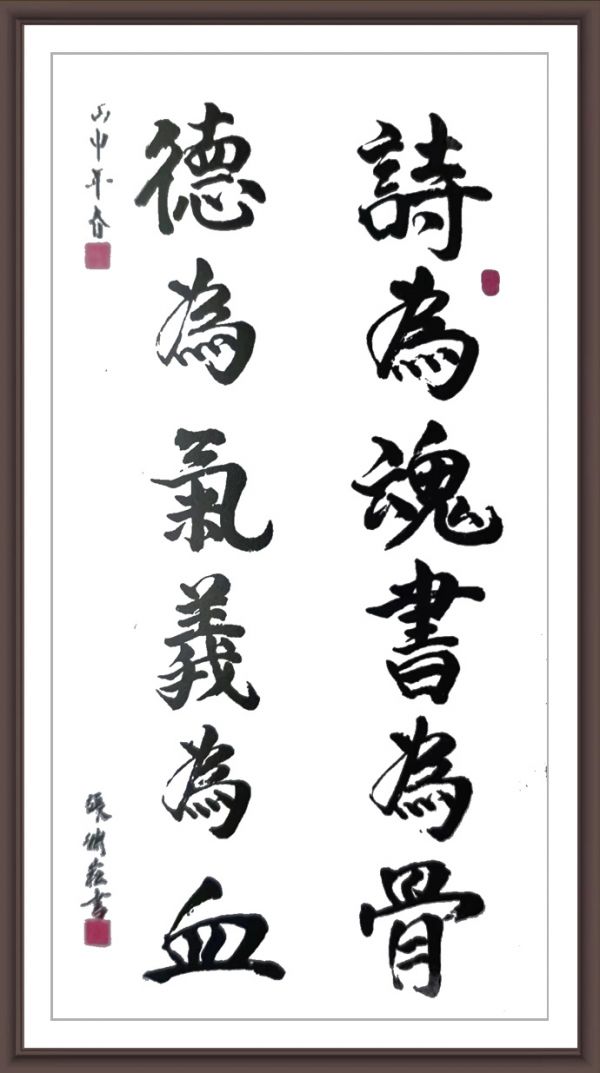 詩為魂書為骨
德為氣義為血
丙申年春